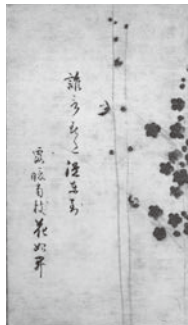 誰言春色從東到
露暖南枝花始開